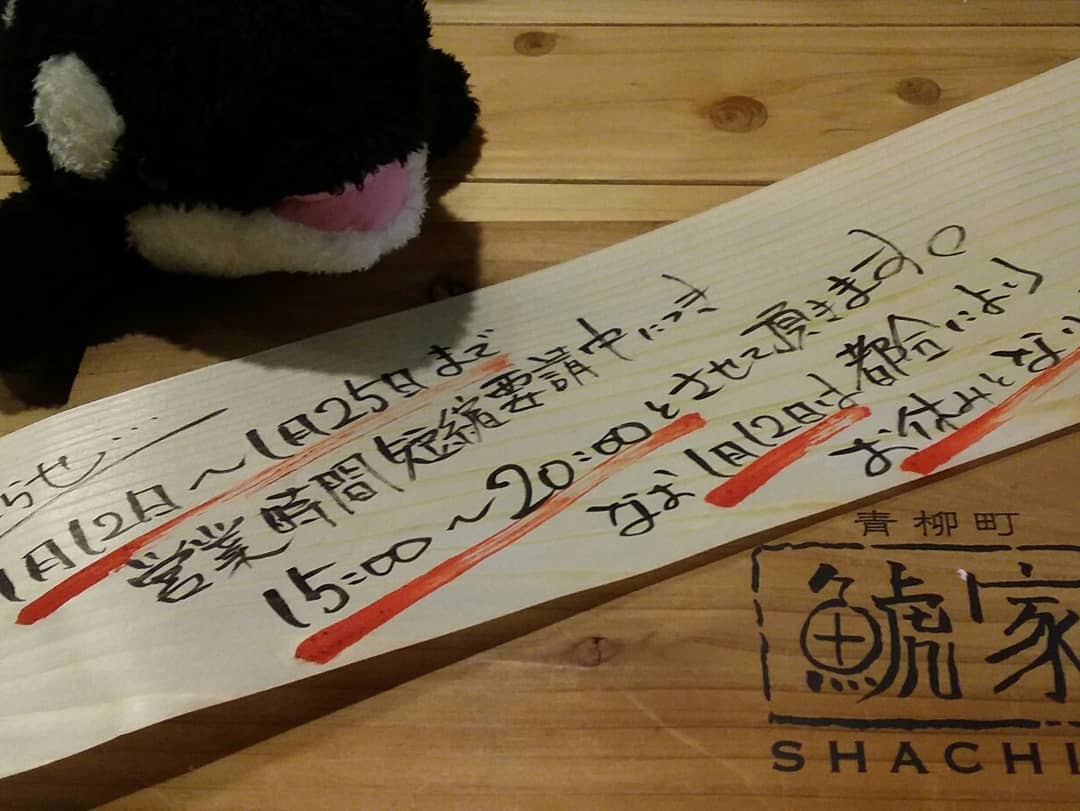 らせ…
1月12日〜1月25日まで
営業時間短縮要請中につき
15:00〜20:00とさせて頂きます。
なお1月12日は都合により
お休みとなり
青柳町
鯱家
SHACHI